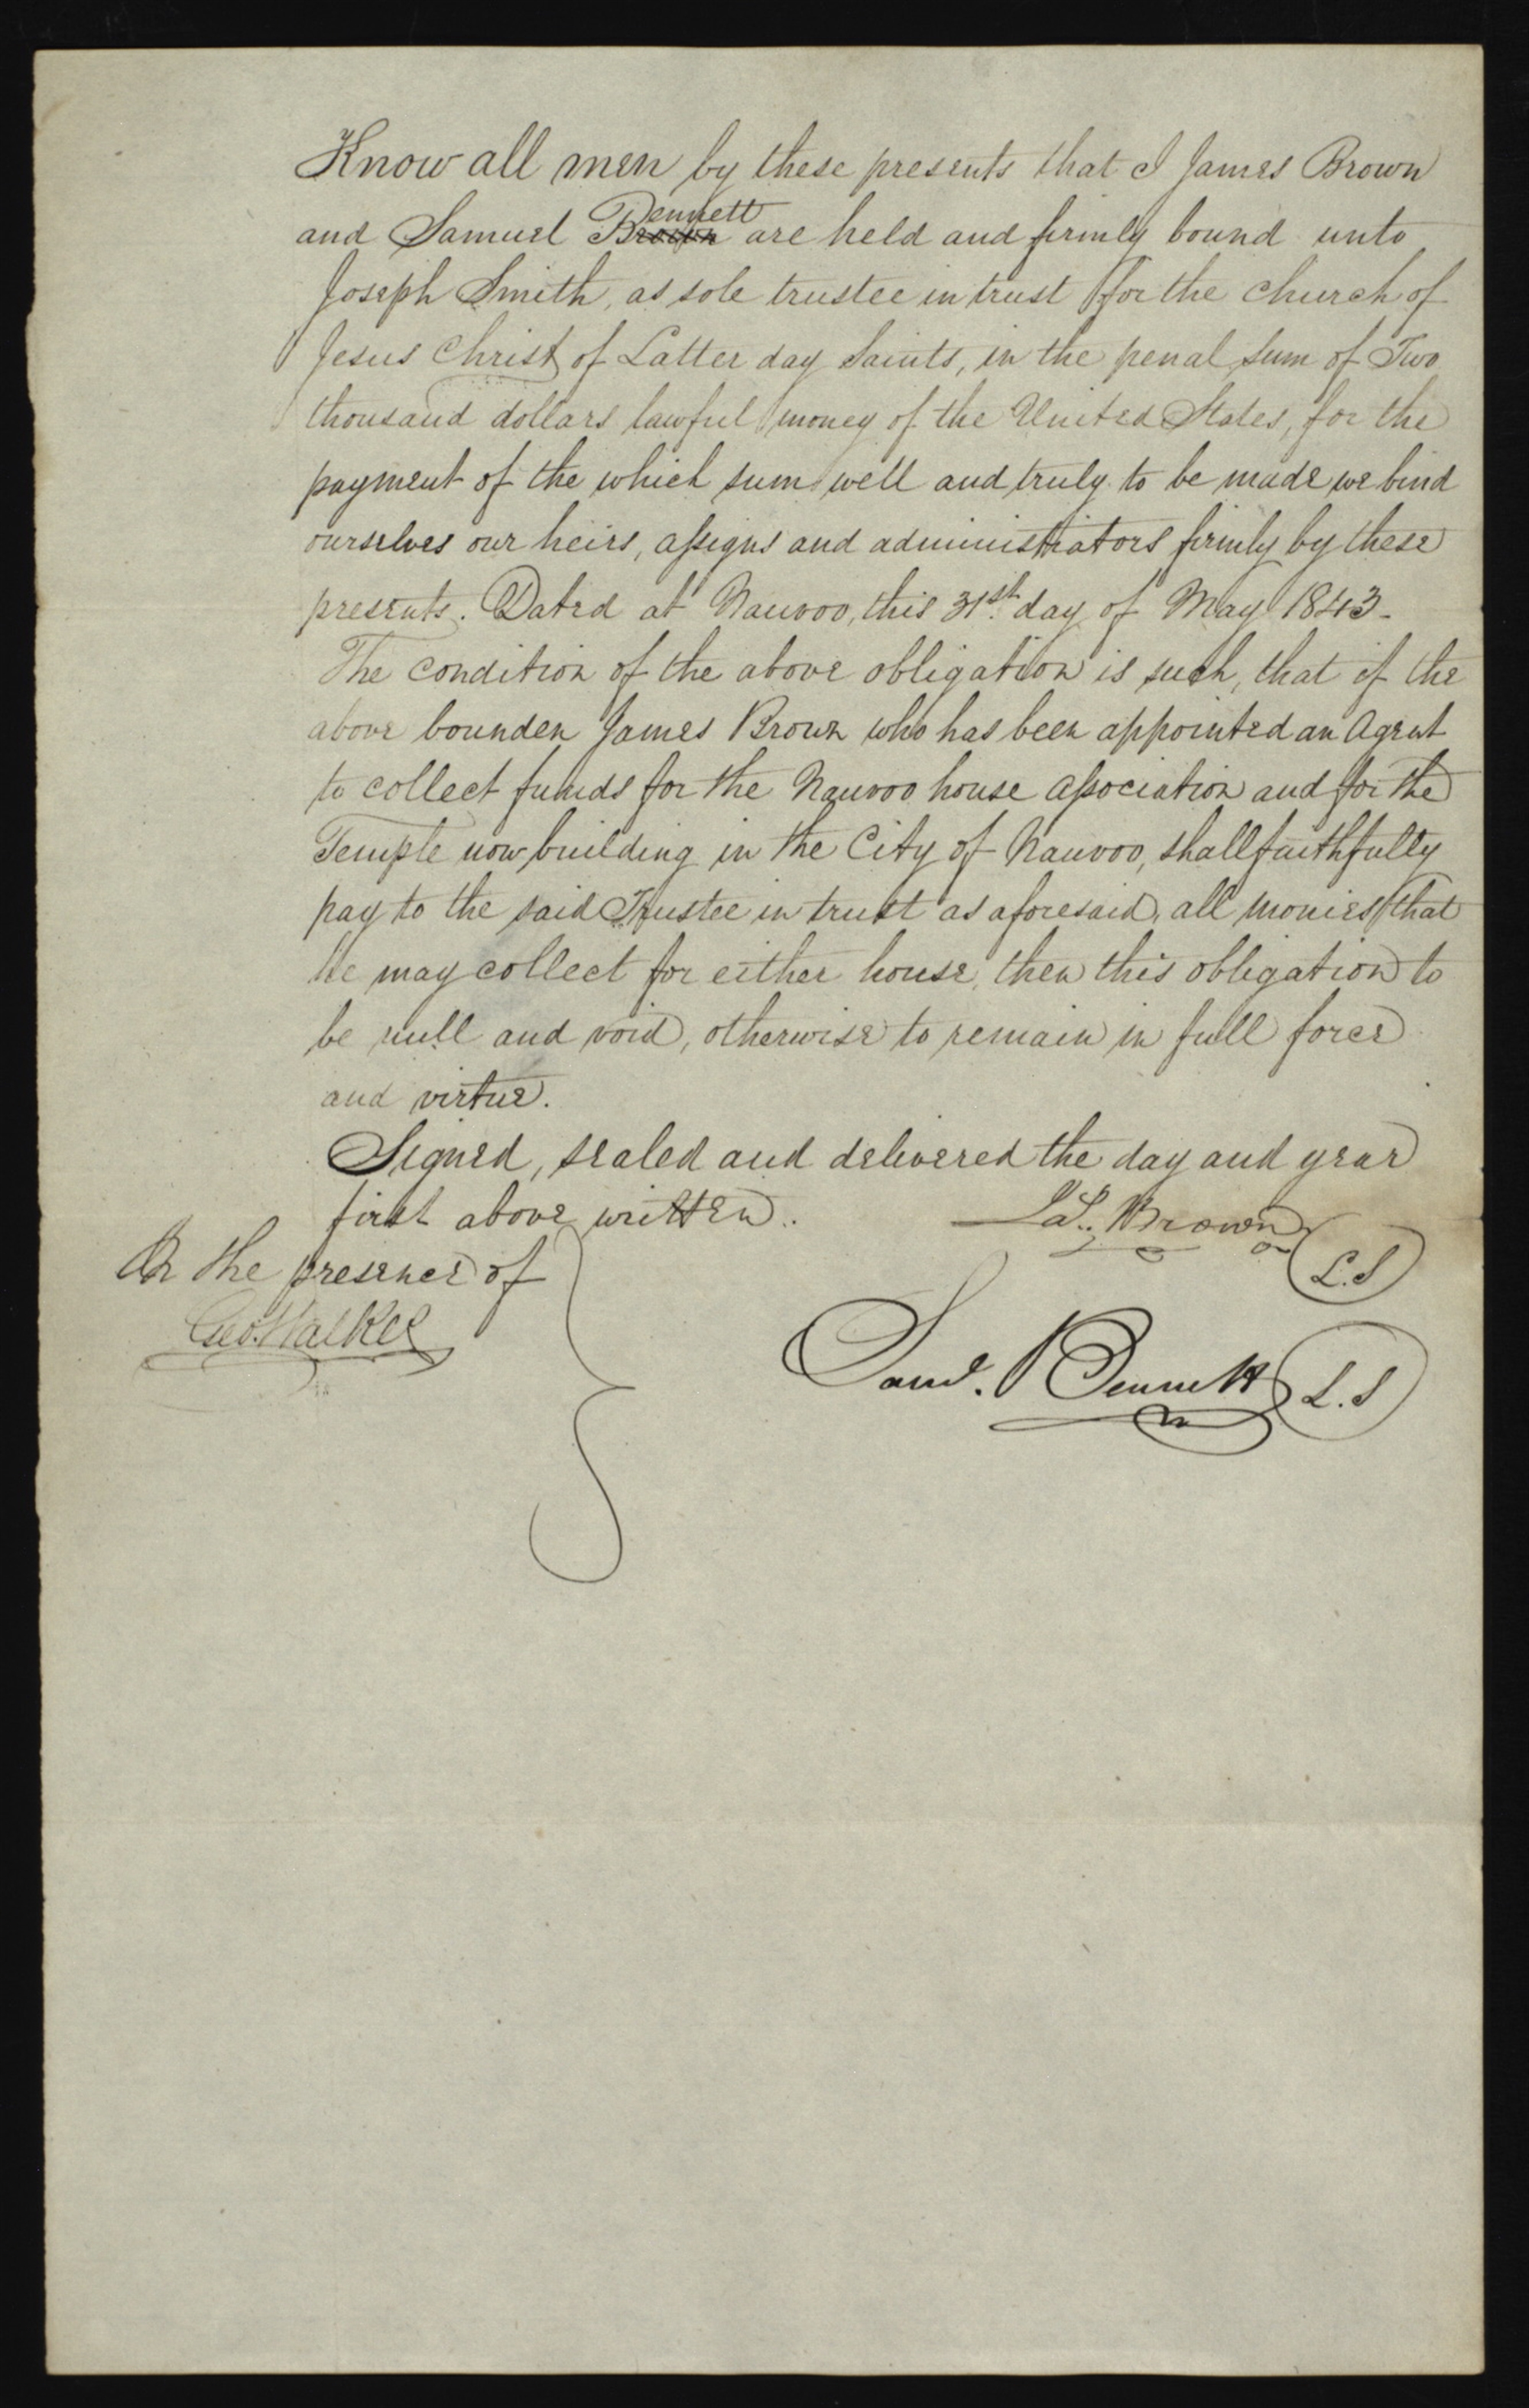 Know all men by these presents that I James Brown
and Samuel Brown Bennett are held and firmly bound unto
Joseph Smith, as sole trustee in trust for the church of
Jesus Christ of Latter day Saints, in the penal sum of Two
thousand dollars lawful money of the United States, for the
payment of the which sum well and truly to be made we bind
ourselves our heirs, assigns and administrators firmly by these
presents. Dated at Nauvoo, this 31st. day of May 1843-
The condition of the above obligation is such, that if the
above bounden James Brown who has been appointed an Agent
to collect funds for the Nauvoo house association and for the
Temple now building in the City of Nauvoo, shall faithfully
pay to the said Trustee in trust as aforesaid, all monies that
he may collect for either house, then this obligation to
be null and void, otherwise to remain in full force
and virtue.
Signed, sealed and delivered the day and year
first above written.
Js. Brown L.S
In the presence of
Geo. Walker
Saml. Bennett L.S